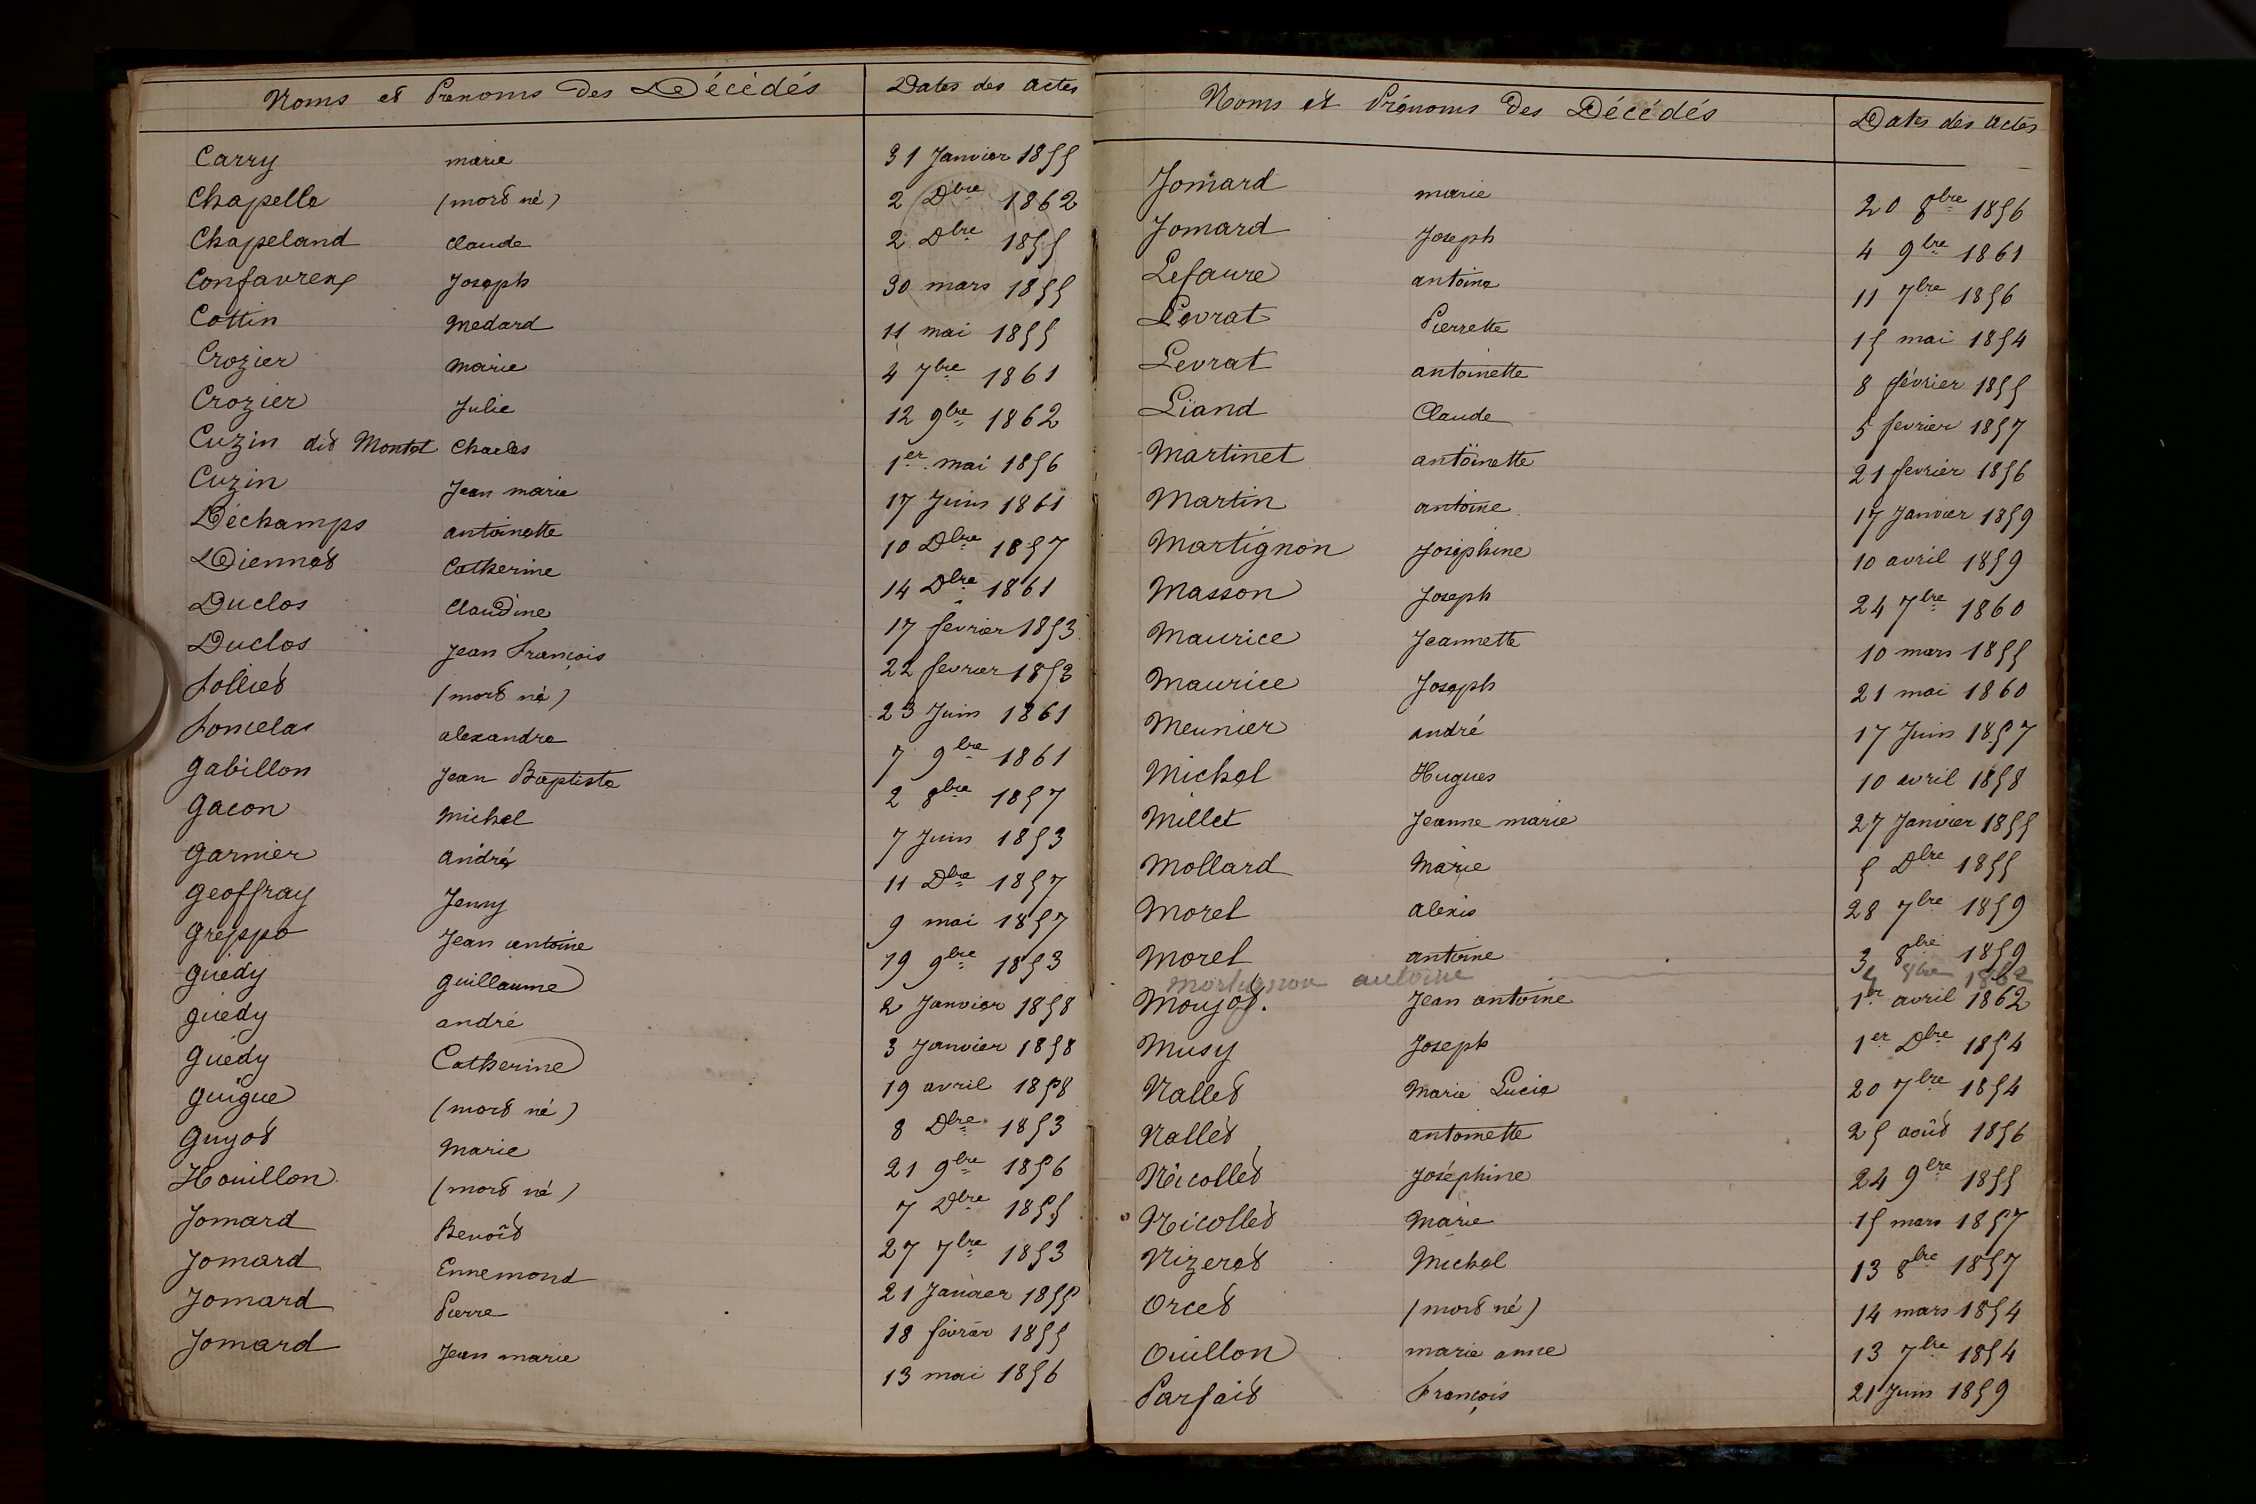 Noms et Prénoms des Décédés Dates des actes
Carry marie 31 Janvier 1855
Chapelle (mort né) 2 Dbre 1862
Chapeland Claude 2 Dbre 1855
Confavreux Joseph 30 mars 1855
Cottin Medard 11 mai 1855
Crozier Marie 4 7bre 1861
Crozier Julie 12 9bre 1862
Cuzin dit Montot Charles 1er mai 1856
Cuzin Jean marie 17 Juin 1861
Déchamps antoinette 10 Dbre 1857
Diennet Catherine 14 Dbre 1861
Duclos Claudine 17 fevrier 1853
Duclos Jean François 22 fevrier 1853
Folliet (mort né) 23 Juin 1861
Foncelas alexandre 7 9bre 1861
Gabillon Jean Baptiste 2 8bre 1857
Gacon Michel 7 Juin 1853
Garnier André 11 Dbre 1857
Geoffray Jenny 9 mai 1857
Greppo Jean antoine 19 9bre 1853
Guédy Guillaume 2 Janvier 1858
Guédy andré 3 Janvier 1858
Guédy Catherine 19 avril 1858
Guigue (mort né) 8 Dbre 1853
Guyot Marie 21 9bre 1856
Houillon (mort né) 7 Dbre 1855
Jomard Benoît 27 7bre 1853
Jomard Ennemond 21 Janvier 1855
Jomard Pierre 18 février 1855
Jomard Jean marie 13 mai 1856
Noms et Prénoms des Décédés Dates des actes
Jomard marie 20 8bre 1856
Jomard Joseph 4 9bre 1861
Lefaure antoine 11 7bre 1856
Levrat Pierrette 15 mai 1854
Levrat antoinette 8 février 1855
Liand Claude 5 fevrier 1857
Martinet antoinette 21 fevrier 1856
Martin antoine 17 Janvier 1859
Martignon Joséphine 10 avril 1859
Masson Joseph 24 7bre 1860
Maurice Jeannette 10 mars 1855
Maurice Joseph 21 mai 1860
Meunier andré 17 Juin 1857
Michel Hugues 10 avril 1858
Millet Jeanne marie 27 Janvier 1855
Mollard Marie 5 Dbre 1855
Morel alexis 28 7bre 1859
Morel antoine 3 8bre 1859
antoine 1862
Moujot. Jean antoine 1er avril 1862
Musy Joseph 1er Dbre 1854
Nallet Marie Lucie 20 7bre 1854
Nallet antoinette 25 août 1856
Nicollet Joséphine 24 9bre 1855
Nicollet Marie 15 mars 1857
Nizeret Michel 13 8bre 1857
Orcet (mort né) 14 mars 1854
Ouillon marie anne 13 7bre 1854
Parfait François 21 Juin 1859